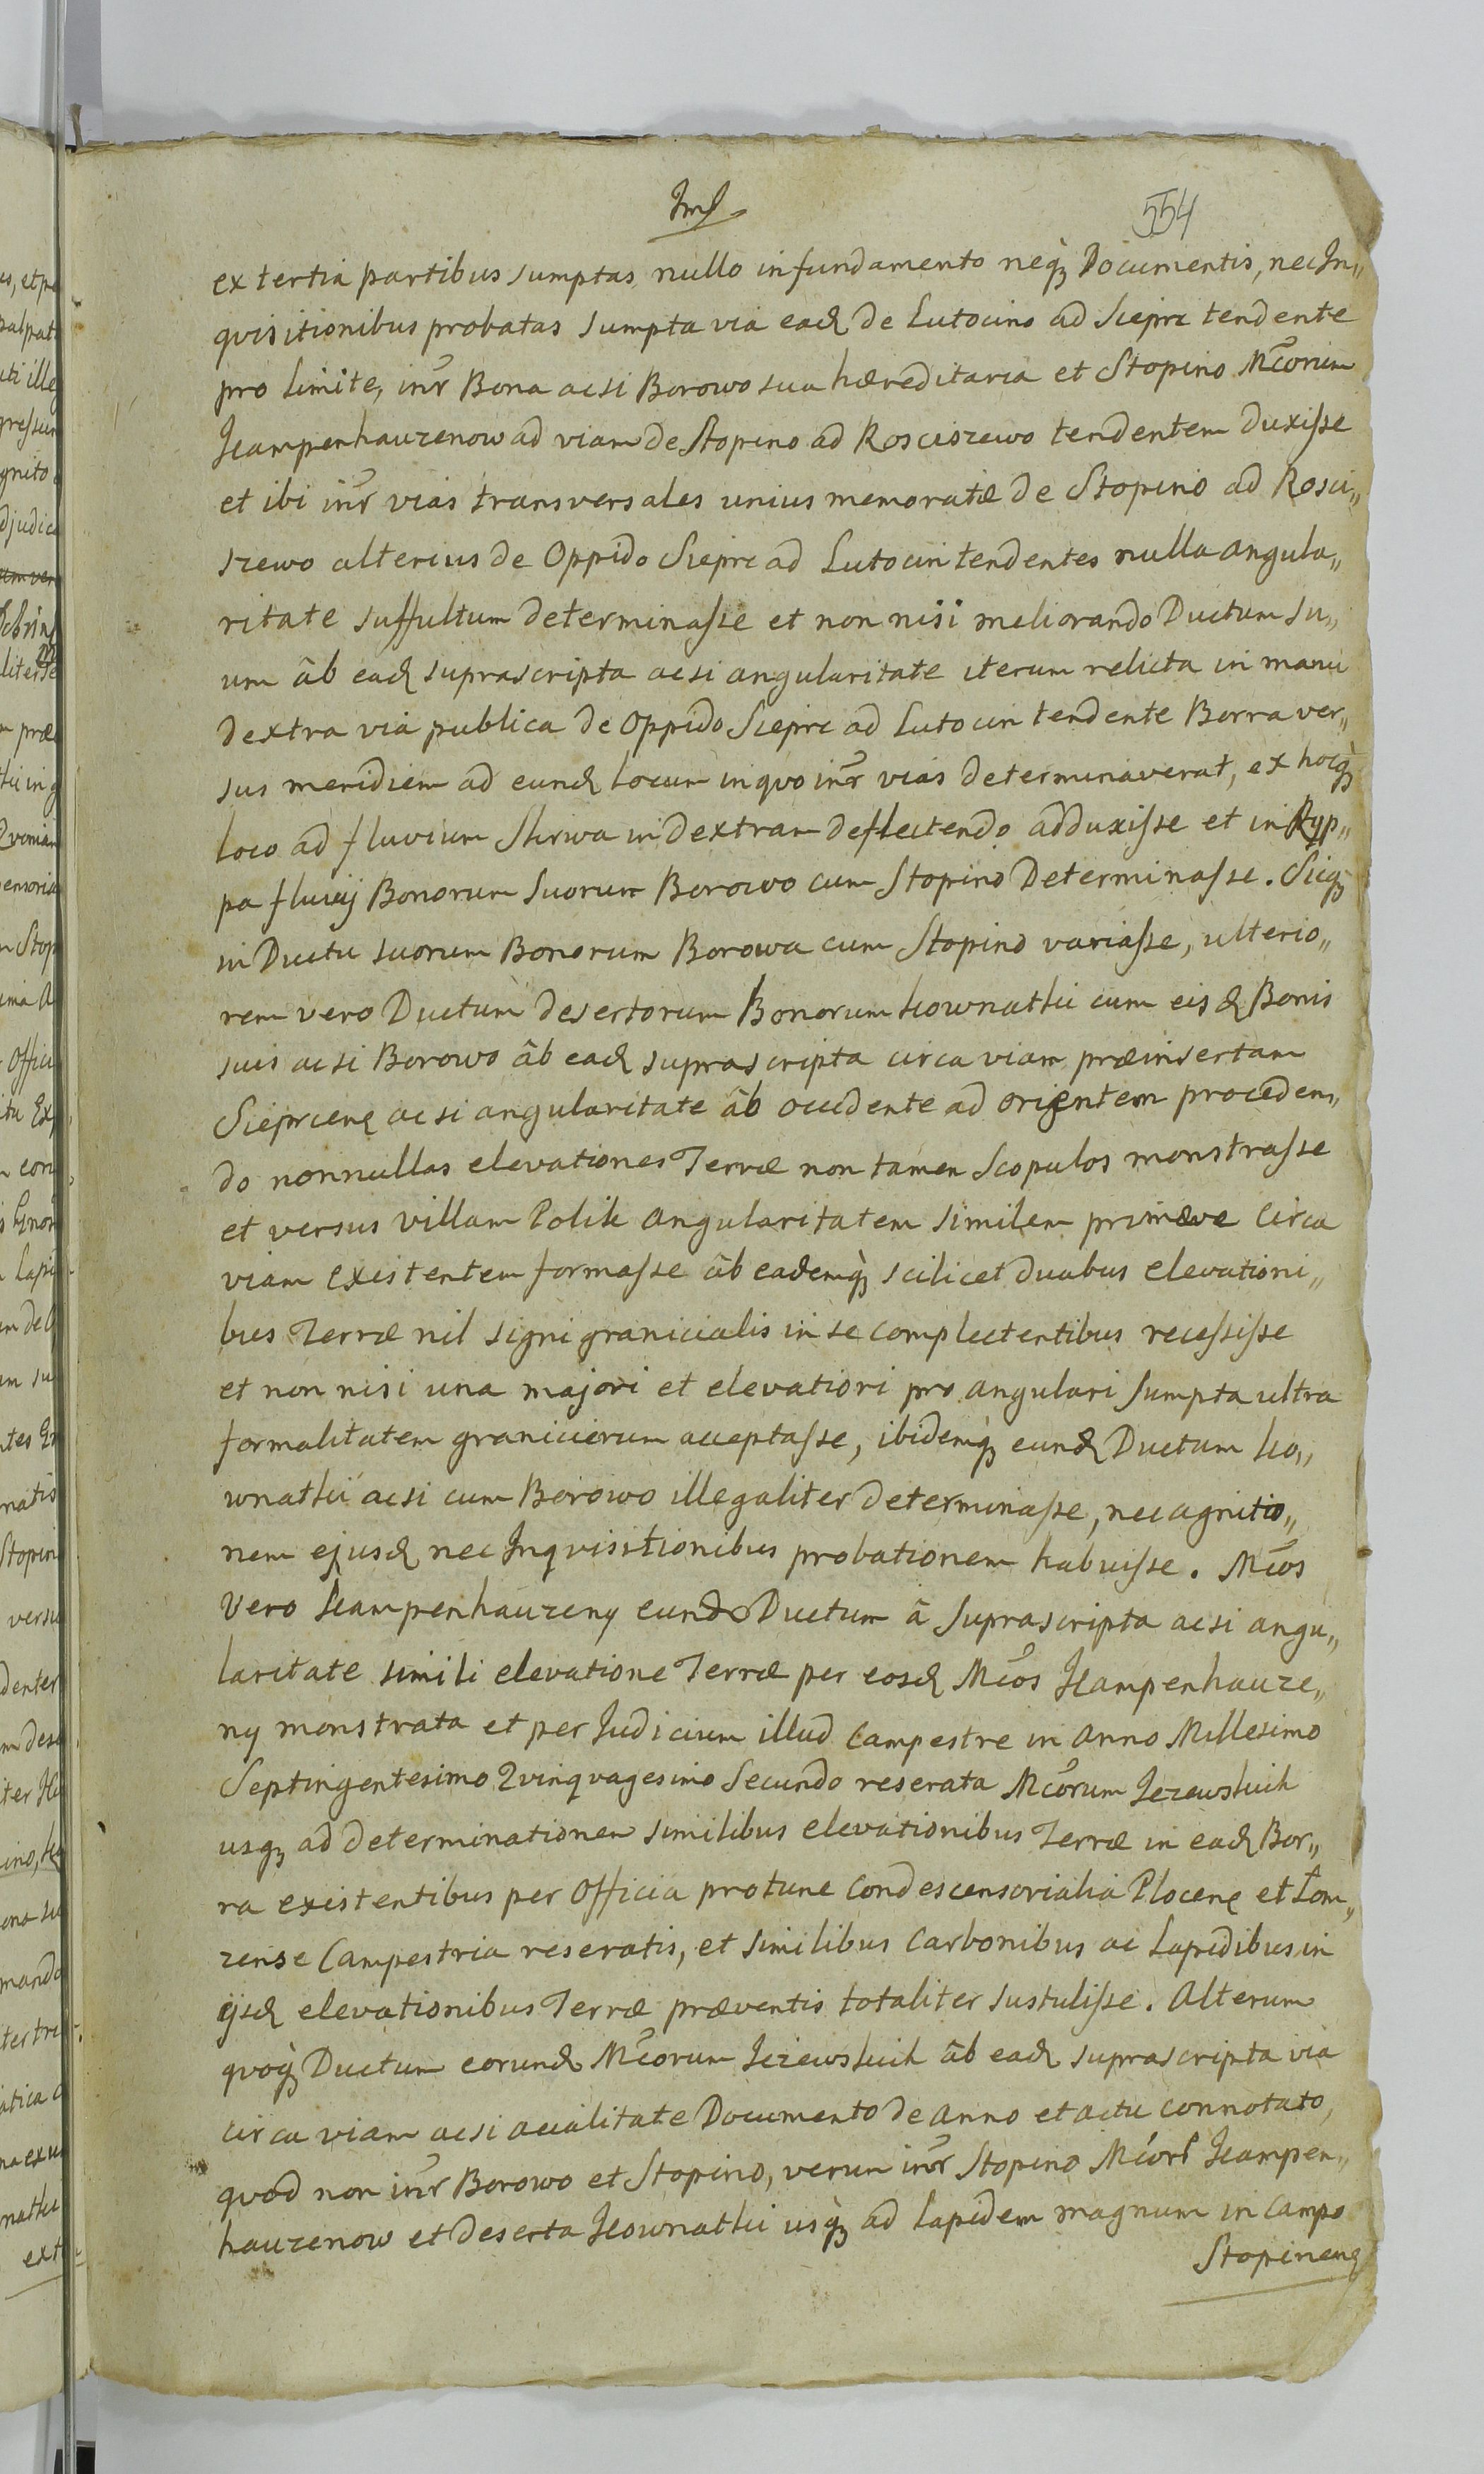 554
ex tertia partibus sumptas nullo in fundamento neq̀ꝫ Documentis, nec In„
qvisitionibus probatas sumpta via ead de Lutocino ad Sieprc tendente
pro limite, inr̃ Bona acsi Borowo sua hæreditaria et Stopino Mc̃orum
Kampenhauzenow ad viam de Stopino ad Rosciszewo tendentem duxisse
et ibi inr̃ vias transversales unius memoratæ de Stopino ad Rosci„
szewo alterius de Oppido Sieprc ad Lutocin tendentes nulla angula„
ritate suffultum determinasse et non nisi meliorando Ductum su„
um âb ead suprascripta acsi angularitate iterum relicta in manu
dextra via publica de Oppido Sieprc ad Lutocin tendente Borra ver„
sus meridiem ad eund locum in quo inr̃ vias determinaverat, ex hocq̀ꝫ
loco ad fluvium Skrwa in dextram deflectendo adduxisse et in Ryp„
pa fluvij Bonorum suorum Borowo cum Stopino Determinasse. Sicq̀ꝫ
in Ductu suorum Bonorum Borowa cum Stopino variasse, ulterio„
rem vero Ductum desertorum Bonorum kownatki cum eisd Bonis
suis acsi Borowo âb ead suprascripta circa viam præinsertam
Sieprcen acsi angularitate âb occidente ad orientem proceden„
do nonnullas elevationes Terræ non tamen Scopulos monstrasse
et versus villam Polik angularitatem similem primæve circa
viam existentem formasse âb eademq̀ꝫ scilicet duabus elevationi„
bus Terræ nil signi granicialis in se complectentibus recessisse
et non nisi una majori et elevatiori pro angulari sumpta ultra
formalitatem granicierum acceptasse, ibidemq̀ꝫ eund Ductum ko„
wnatki acsi cum Borowo illegaliter determinasse, nec agnitio„
nem ejusd nec Inqvisitionibus probationem habuisse. Mc̃os
vero Kampenhauzeny eund Ductum â suprascripta acsi angu„
laritate simili elevatione Terræ per eosd Mc̃os Kampenhauze„
ny monstrata et per Judicium illud Campestre in Anno Millesimo
Septingentesimo Qvinqvagesimo Secundo reserata Mc̃orum Jezewskich
usqꝫ ad determinationem similibus elevationibus Terræ in ead Bor„
ra existentibus per Officia protunc Condescensorialia Plocen et Lom„
zense Campestria reseratis, et similibus Carbonibus ac Lapidibus in
ijsd elevationibus Terræ præventis totaliter sustulisse. Alterum
qvoq̀ꝫ Ductum eorund Mc̃orum Jezewskich âb ead suprascripta via
circa viam acsi Documento de Anno et actu connotato,
quod non inr̃ Borowo et Stopino, verum inr̃ Stopino Mc̃or Kampen„
hauzenow et deserta Kownatki usq̀ꝫ ad Lapidem magnum in Campo
Stopinen